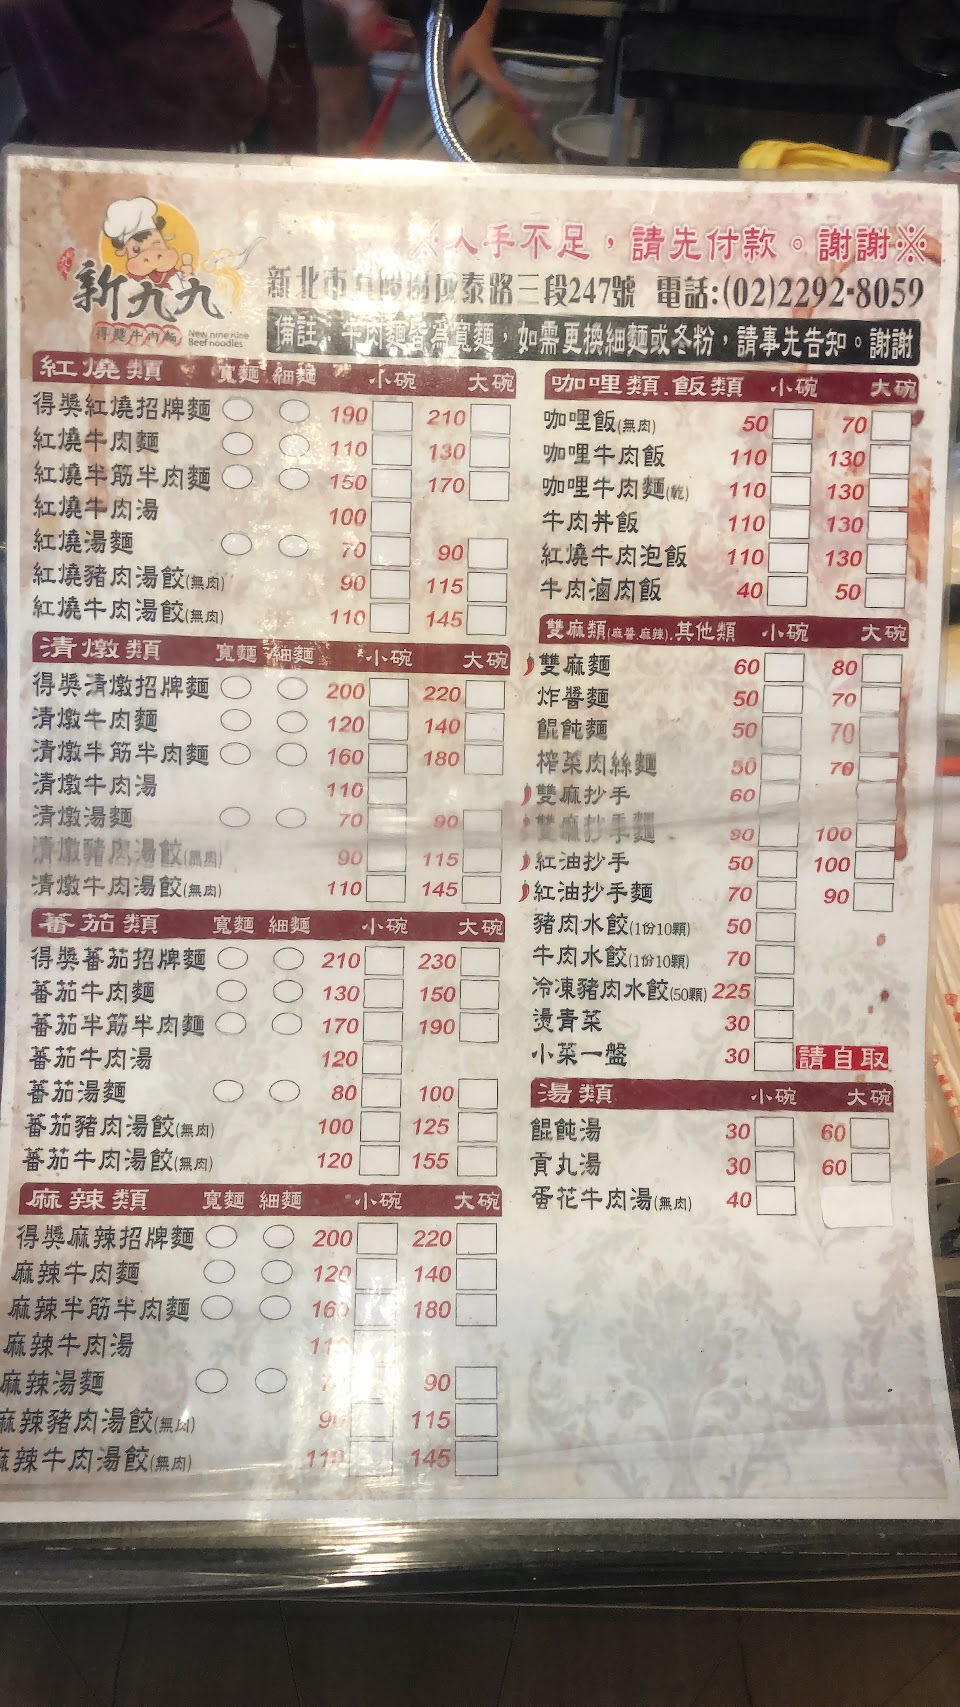 ※人手不足，請先付款。謝謝※
新九九
得獎牛肉麵
New nine nine
Beef noodles
新北市五股區成泰路三段247號 電話:(02)2292-8059
備註：牛肉麵皆為寬麵，如需更換細麵或冬粉，請事先告知。謝謝
紅燒類 寬麵 細麵 小碗 大碗
得獎紅燒招牌麵 190 210
紅燒牛肉麵 110 130
紅燒半筋半肉麵 150 170
紅燒牛肉湯 100
紅燒湯麵 70 90
紅燒豬肉湯餃(無肉) 90 115
紅燒牛肉湯餃(無肉) 110 145
清燉類 寬麵 細麵 小碗 大碗
得獎清燉招牌麵 200 220
清燉牛肉麵 120 140
清燉半筋半肉麵 160 180
清燉牛肉湯 110
清燉湯麵 70 90
清燉豬肉湯餃(無肉) 90 115
清燉牛肉湯餃(無肉) 110 145
蕃茄類 寬麵 細麵 小碗 大碗
得獎蕃茄招牌麵 210 230
蕃茄牛肉麵 130 150
蕃茄半筋半肉麵 170 190
蕃茄牛肉湯 120
蕃茄湯麵 80 100
蕃茄豬肉湯餃(無肉) 100 125
蕃茄牛肉湯餃(無肉) 120 155
麻辣類 寬麵 細麵 小碗 大碗
得獎麻辣招牌麵 200 220
麻辣牛肉麵 120 140
麻辣半筋半肉麵 160 180
麻辣牛肉湯 110
麻辣湯麵 90
麻辣豬肉湯餃(無肉) 90 115
麻辣牛肉湯餃(無肉) 110 145
咖哩類.飯類 小碗 大碗
咖哩飯(無肉) 50 70
咖哩牛肉飯 110 130
咖哩牛肉麵(乾) 110 130
牛肉丼飯 110 130
紅燒牛肉泡飯 110 130
牛肉滷肉飯 40 50
雙麻類(麻醬.麻辣).其他類 小碗 大碗
雙麻麵 60 80
炸醬麵 50 70
餛飩麵 50 70
榨菜肉絲麵 50 70
雙麻抄手 60
雙麻抄手麵 80 100
紅油抄手 50 100
紅油抄手麵 70 90
豬肉水餃(1份10顆) 50
牛肉水餃(1份10顆) 70
冷凍豬肉水餃(50顆) 225
燙青菜 30
小菜一盤 30 請自取
湯類 小碗 大碗
餛飩湯 30 60
貢丸湯 30 60
蛋花牛肉湯(無肉) 40